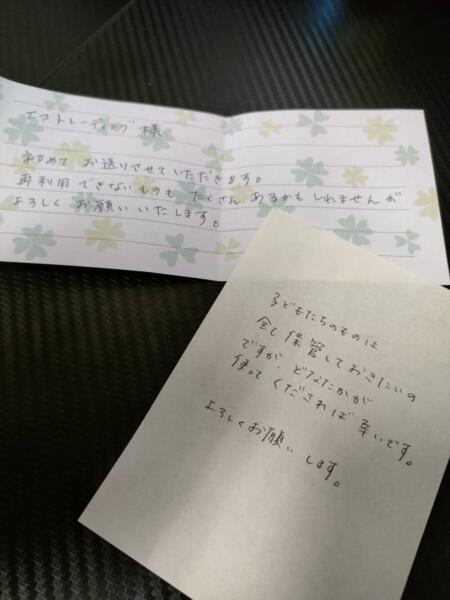 エコトレーディング様
初めて お送りさせていただきます。
再利用できないものも たくさん あるかもしれませんが
よろしく お願いいたします。
子どもたちのものは
全て保管しておきたいの
ですが、どなたかが
使って くだされば 幸いです。
よろしくお願いします。